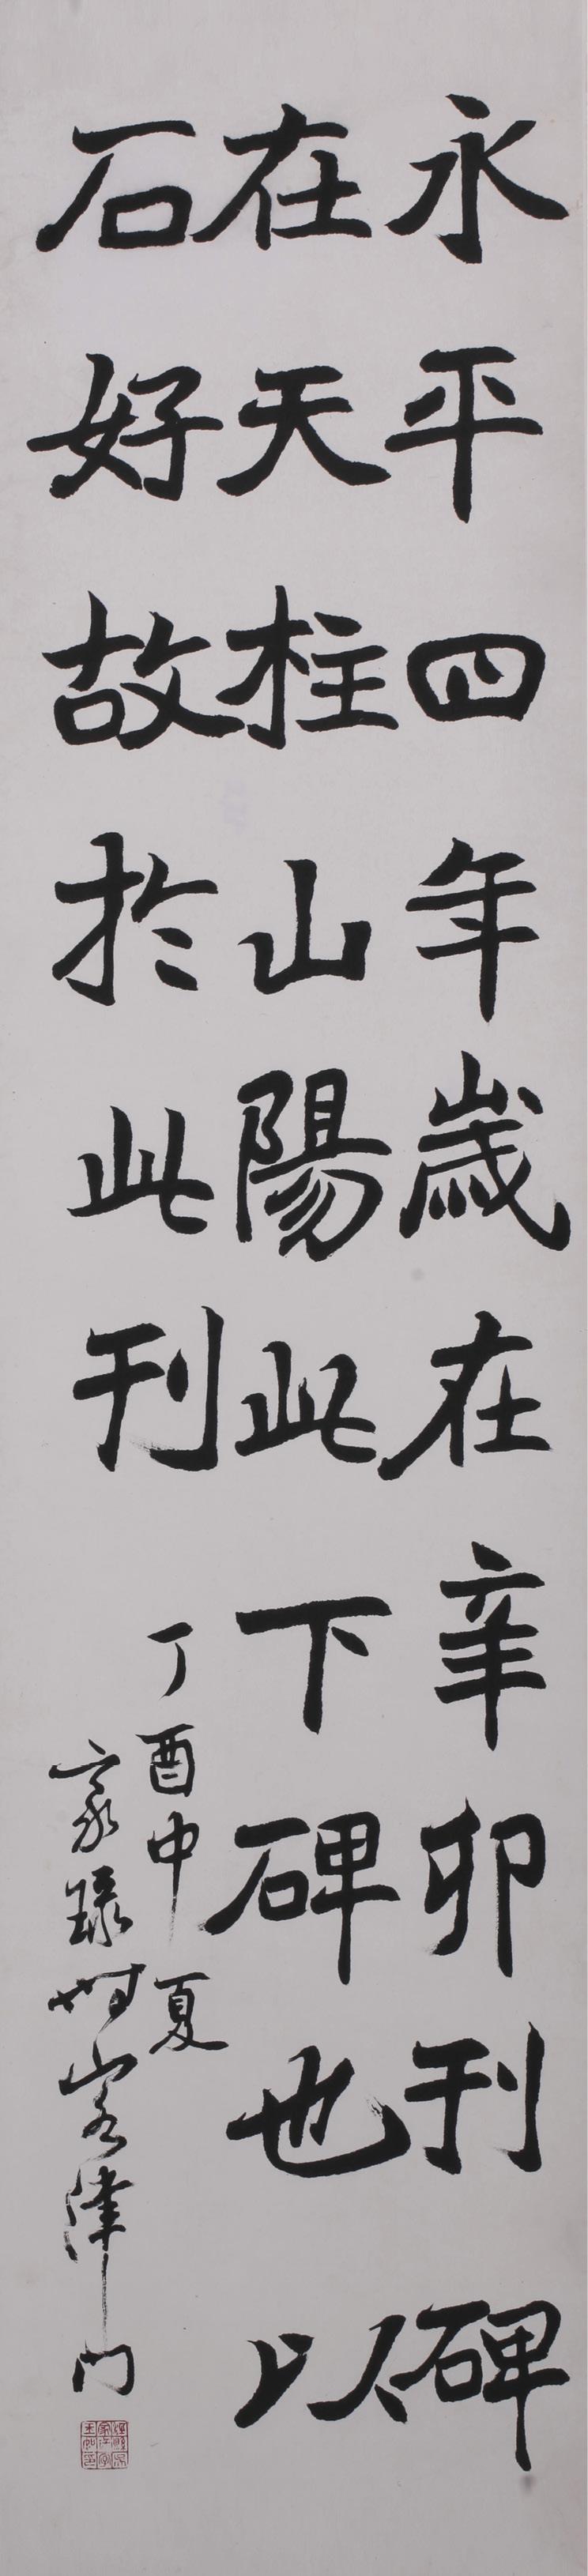 永平四年歲在辛卯刊碑
在天柱山陽此下碑也以
石好故於此刊
丁酉中夏
家琭時客津門